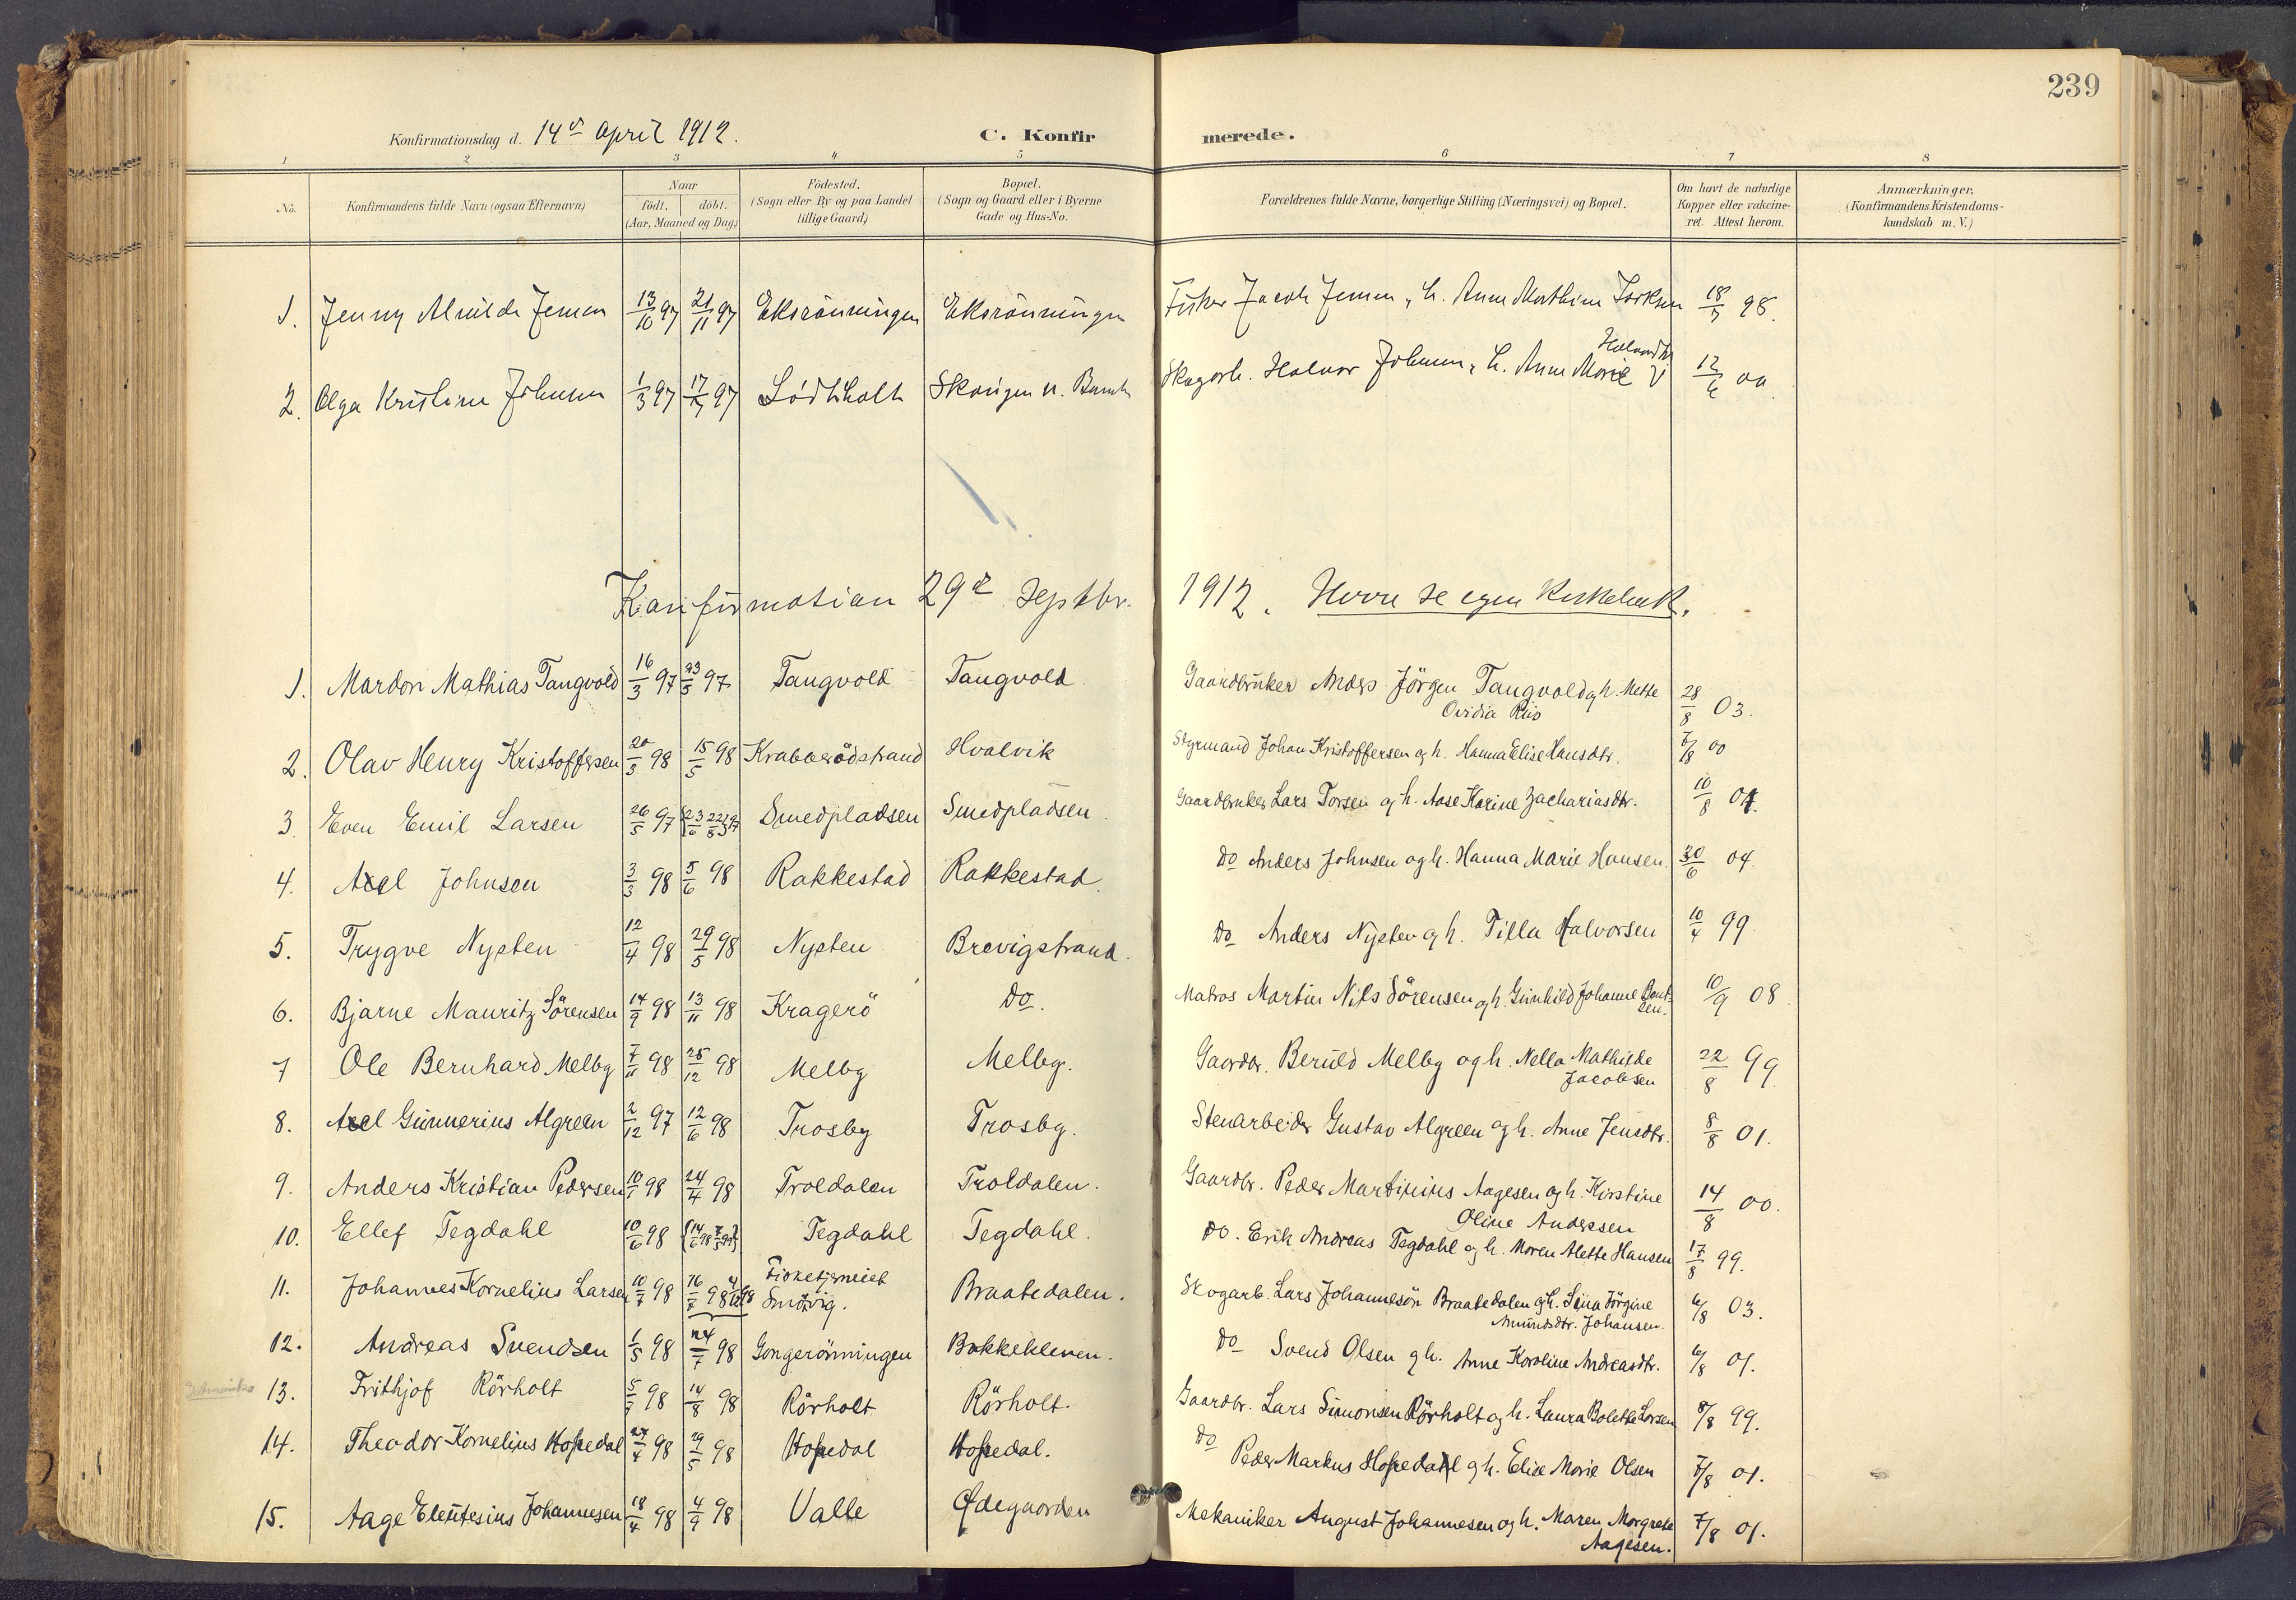 239
Konfirmationsdag d. 14de April 1912. C. Konfir merede.
1 2 3 4 5 6 7 8
No. Konfirmandens fulde Navn (ogsaa Efternavn) Naar födt. döbt. (Aar, Maaned og Dag) Födested. (Sogn eller By og paa Landet tillige Gaard) Bopæl. (Sogn og Gaard eller i Byerne Gade og Hus-No. Forældrenes fulde Navne, borgerlige Stilling (Næringsvei) og Bopæl. Om havt de naturlige Kopper eller vakcineret. Attest herom. Anmærkninger, (Konfirmandens Kristendomskundskab m. V.)
1. Jenny Alvilde Jensen 13/10 97 21/11 97 Eksrönningen Eksrönningen Fisker Jacob Jensen, h. Anne Mathine 18/5 98.
2. Olga Kristine Johnsen 1/3 97 97 Skougen n. Bamb. Skogarb. Halvor Johnsen, h. Anne Marie Halvorsdtr 12/6 00
Konfirmation 29de Septbr. 1912. Herre se egen Kirkebok.
1. Mardon Mathias Tangvold 16/3 97 23/5 97 Tangvold Tangvold Gaardbruker Anders Jörgen Tangvold og h. Mette
Ovidia Riis 28/8 03.
2. Olav Henry Kristoffersen 20/3 98 15/5 98 Krabberödstrand Hvalvik Styrmand Johan Kristoffersen og h. Hanna Elise Hansdtr. 7/8 00
3. Even Emil Larsen 26/5 97 23/6 22/8 97 Smedpladsen Smedpladsen. Gaardbruker Lars Torsen og h. Aase Karine Zachariasdtr. 10/8 01.
4. Axel Johnsen 3/3 98 5/6 98 Rakkestad Rakkestad. Do Anders Johnsen og h. Hanna Marie Hansen. 30/6 04.
5. Trygve Nysten 12/4 98 29/5 98 Nysten Brevigstrand. Do Anders Nysten og h. Tilla Halvorsen 10/4 99.
6. Bjarne Mauritz Sörensen 14/9 98 13/11 98 Kragerö Do. Matros Martin Nils Sörensen og h. Gunhild Johanne Bentsen. 10/9 08.
7 Ole Bernhard Melby 7/11 98 25/12 98 Melby Melby. Gaardbr. Beruld Melby og h. Nella Mathilde
Jacobsen 22/8 99.
8. Axel Gunnerius Algreen 2/12 97 12/6 98 Trosby Trosby. Stenarbeider Gustav Algreen og h. Anne Jensdtr. 8/8 01.
9. Anders Kristian Pedersen 10/1 98 24/4 98 Troldalen Troldalen. Gaardbr. Peder Martinius Aagesen og h. Kirstine
Oline Andersen 14/8 00.
10. Ellef Tegdahl 10/6 98 14/6 98 Tegdahl Tegdahl. Do. Erik Andreas Tegdahl og h. Maren Alette Hansen 17/8 99.
11. Johannes Kornelius Larsen 10/7 98 16/7 98 Fisketjerneiet
Smörvig. Braatedalen. Skogarb. Lars Johannesön Braatedalen og h. Lina Jörgine
Amundsdtr. Johansen. 6/8 03.
12. Andreas Svendsen 1/5 98 24/7 98 Gongerönningen Bakkekleven. Do Svend Olsen og h. Anne Karoline Andreasdtr. 6/8 01.
13. Frithjof Rörholt 5/7 98 14/8 98 Rörholt Rörholt. Gaardbr. Lars Simonsen Rörholt og h. Laura Bolette Larsen 8/8 99.
14. Theodor Kornelius Hopedal 27/4 98 29/5 98 Hopedal Hopedal. Do Peder Markus Hopedal og h. Elise Marie Olsen 7/8 01.
15. Aage Eleutesius Johannesen 18/4 98 4/9 98 Valle Ødegaarden Mekaniker August Johannesen og h. Maren Margrete
Aagesen. 7/8 01.